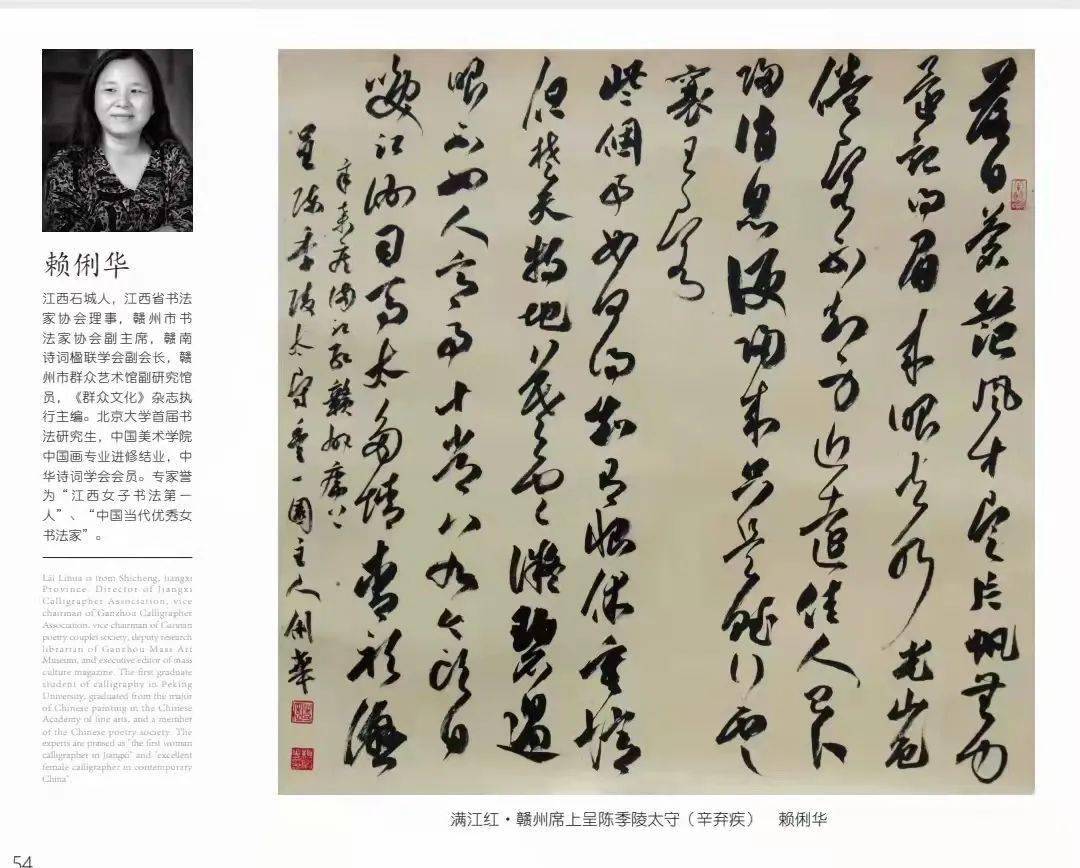 赖俐华
江西石城人，江西省书法
家协会理事，赣州市书
法家协会副主席，赣南
诗词楹联学会副会长，赣
州市群众艺术馆副研究馆
员，《群众文化》杂志执
行主编。北京大学首届书
法研究生，中国美术学院
中国画专业进修结业，中
华诗词学会会员。专家誉
为“江西女子书法第一
人”、“中国当代优秀女
书法家”。
Lai Lihua is from Shicheng, Jiangxi
Province. Director of Jiangxi
Calligrapher Association, vice
chairman of Ganzhou Calligrapher
Association, vice chairman of Gannan
poetry couplet society, deputy research
librarian of Ganzhou Mass Art
Museum, and executive editor of mass
culture magazine. The first graduate
student of calligraphy in Peking
University, graduated from the major
of Chinese painting in the Chinese
Academy of fine arts, and a member
of the Chinese poetry society. The
experts are praised as "the first woman
calligrapher in Jiangxi" and "excellent
female calligrapher in contemporary
China"
落日苍茫风才定片帆无力
还记得眉来眼去水光山色
倦客不知身近远佳人已卜
归消息便归来只是赋行云
襄王客
些个事如何得知有恨休重忆
但楚天特地暮云凝碧过
眼不如人意事十常八九今头白
笑江州司马太多情青衫湿
辛弃疾满江红赣州席上
呈陈季陵太守一园主人俐华
满江红·赣州席上呈陈季陵太守（辛弃疾） 赖俐华
54